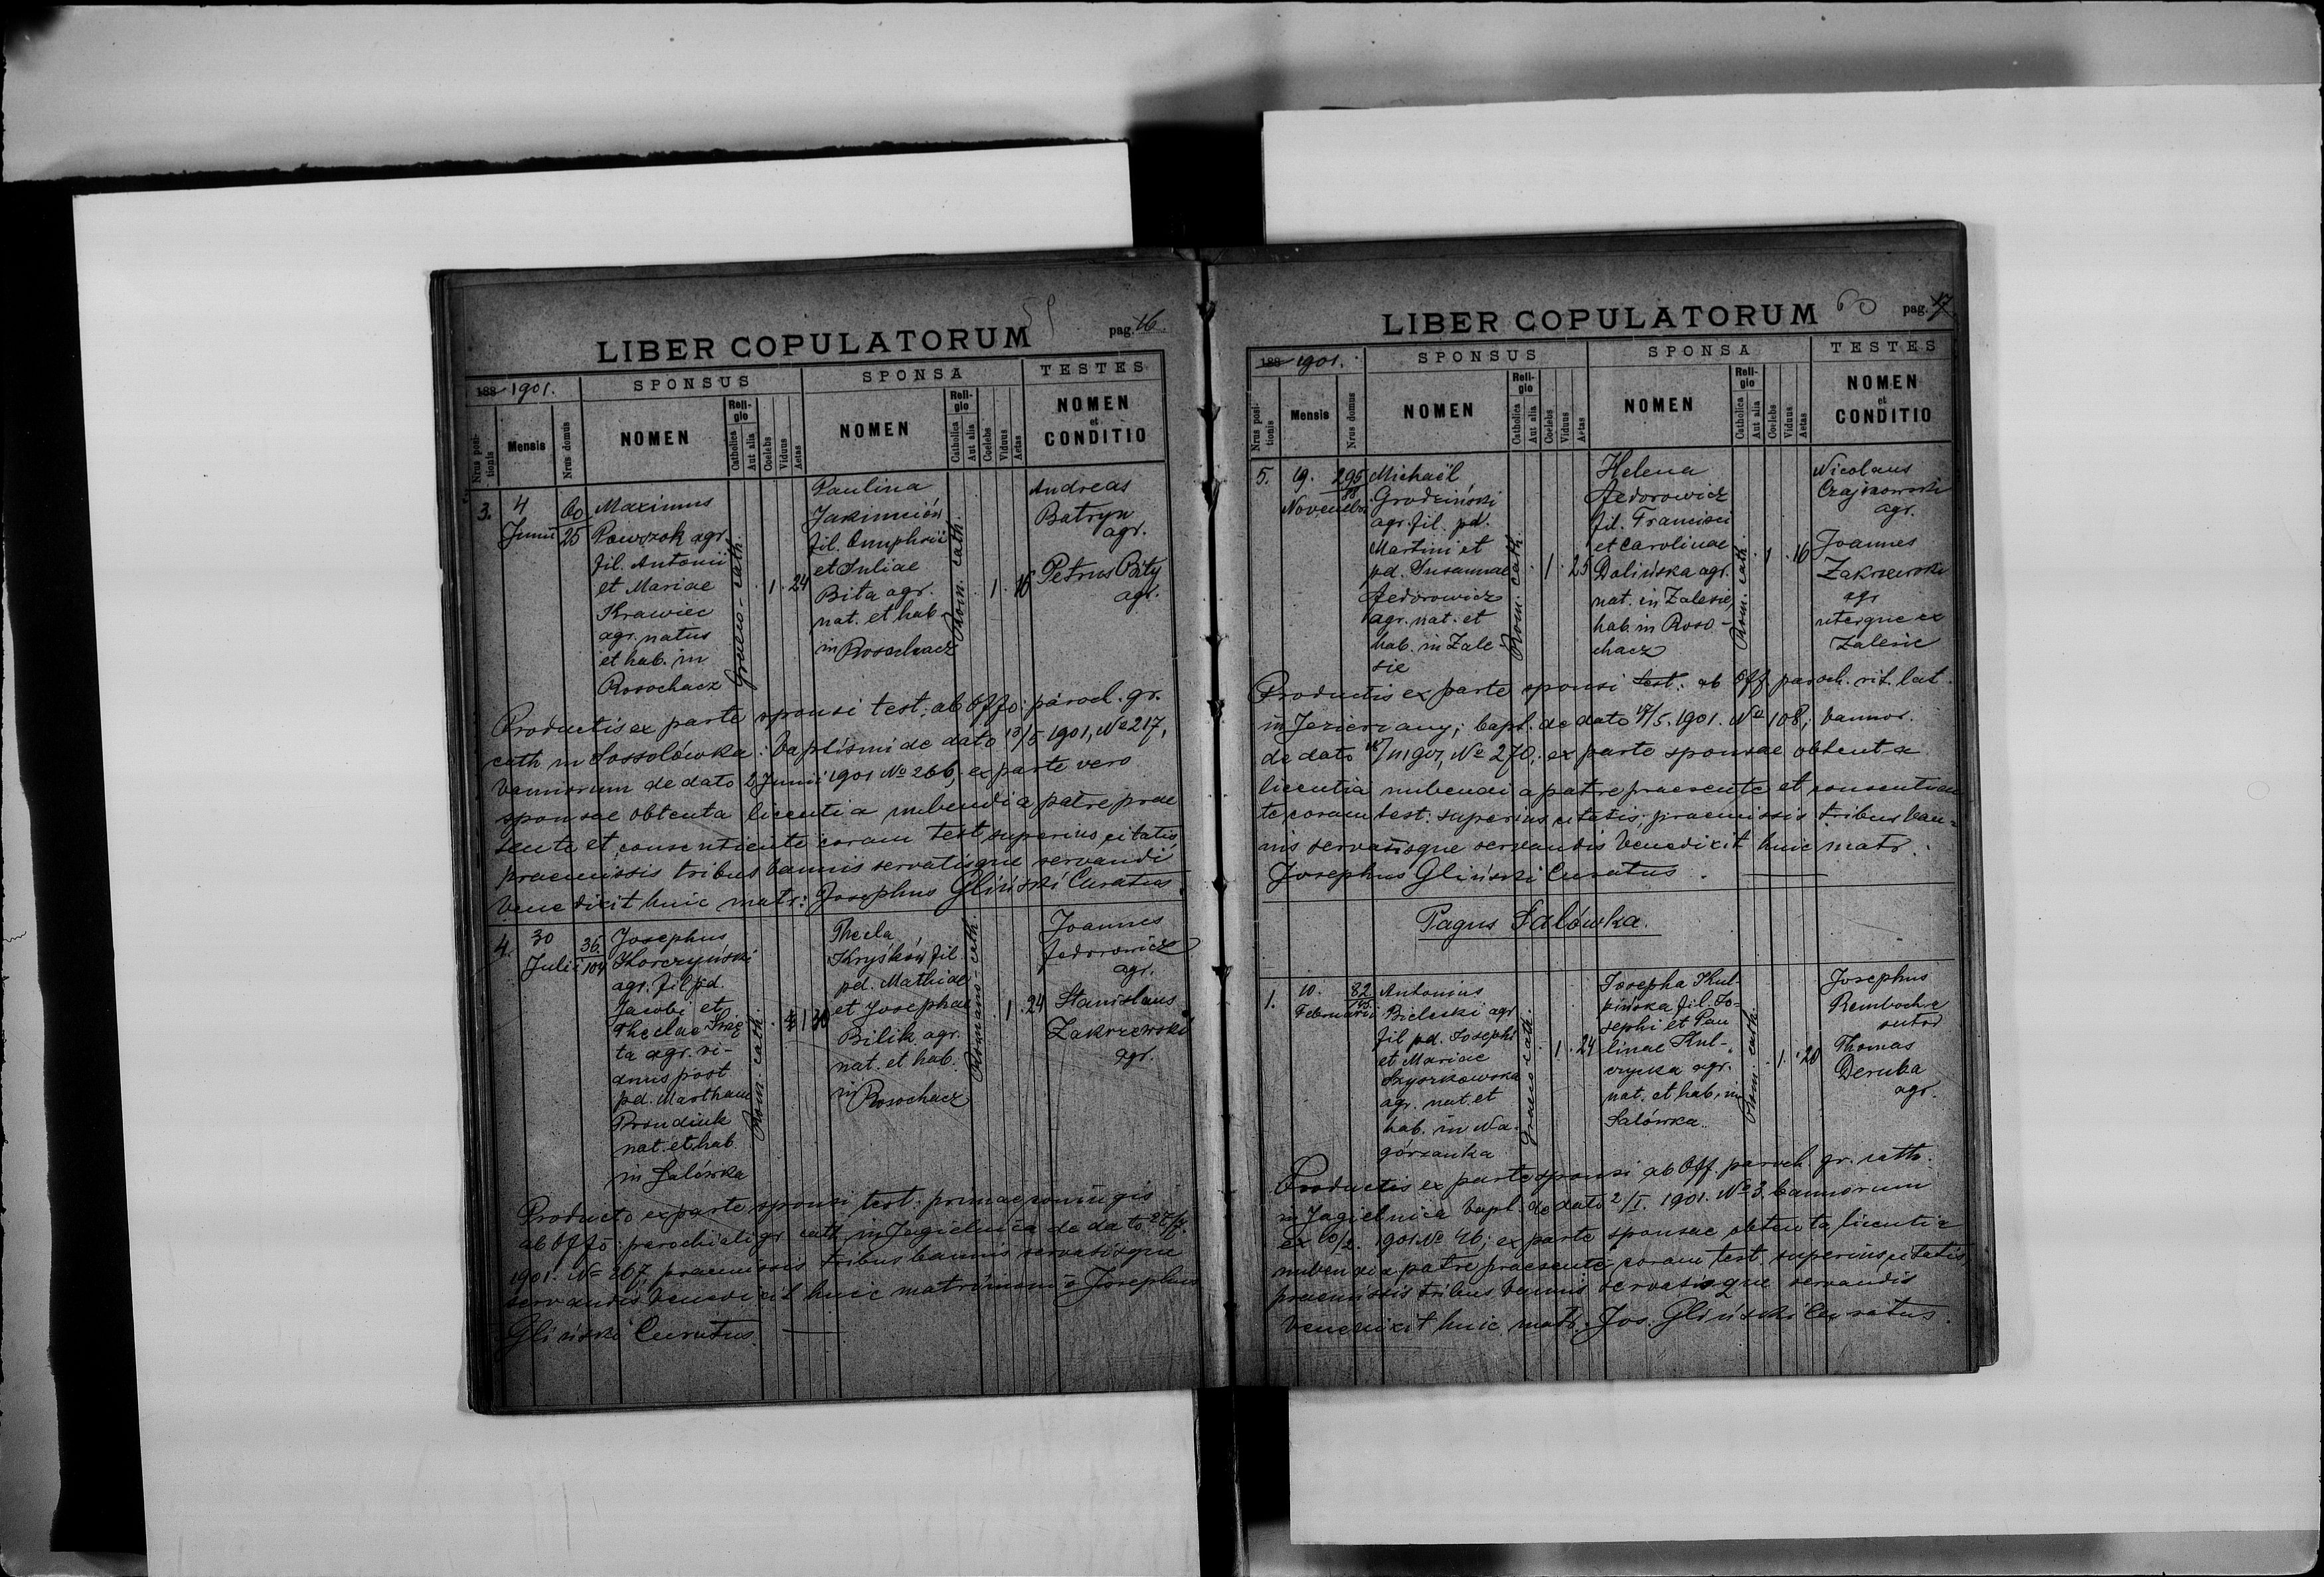 59
LIBER COPULATORUM
pag. 16
188 1901.
SPONSUS
SPONSA
TESTES
Nrus positionis
Mensis
Nrus domus
NOMEN
Religio
Catholica
Aut alia
Coelebs
Viduus
Aetas
NOMEN
Religio
Catholica
Aut alia
Coelebs
Viduus
Aetas
NOMEN
et
CONDITIO
3.
4
Junii
60
25
Maximus
Powszok agr.
fil. Antonii
et Mariae
Krawiec
agr. natus
et hab. in
Rosochacz
Graeco-cath.
1 . 24
Paulina
Jakimciów
fil. Onuphrii
et Juliae
Bita agr.
nat. et hab.
in Rosochacz
Rom. cath.
1 . 18
Andreas
Batryn
agr.
Petrus Bity
agr.
Productis ex parte sponsi test. ab Offo: paroch. gr.
cath in Sossolówka: baptismi de dato 13/5 1901, No 217,
bannorum de dato 2 Junii 1901 No 266; ex parte vero
sponsae obtenta licentia nubendi a patre prae
sente et consentiente coram test. superius citatis
praemissis tribus bannis servatisque servandi
benedixit huic matr: Josephus Gliński Curatus.
4.
30
Julii
36.
104
Josephus
Korczyński
agr. fil pd.
Jacobi et
Theclae Świę
ta agr. vi-
duus post
pd. Martham
Prondiuk
nat. et hab
in Salówka
Rom. cath.
1 30
Thecla
Kryśków fil
pd. Mathiae
et Josephae
Bilik agr.
nat. et hab.
in Rosochacz
Romano-cath.
1 . 24
Joannes
Fedorowicz
agr.
Stanislaus
Zakrzewski
agr.
Producto ex parte sponsi test. primae conjugis
ab Offo parochiali gr. cath. in Jagielnica de dato 27/7.
1901. No 267, praemissis tribus bannis servatisque
servandis benedixit huic matrimonio Josephus
Gliński Curatus.
60
LIBER COPULATORUM
pag. 17
188 1901.
SPONSUS
SPONSA
TESTES
Nrus positionis
Mensis
Nrus domus
NOMEN
Religio
Catholica
Aut alia
Coelebs
Viduus
Aetas
NOMEN
Religio
Catholica
Aut alia
Coelebs
Viduus
Aetas
NOMEN
et
CONDITIO
5.
19.
Novembr.
295
88
Michaël
Grodziński
agr. fil. pd.
Martini et
pd. Susannae
Fedorowicz
agr. nat. et
hab. in Zale-
sie
Rom. cath.
1 . 25
Helena
Fedorowicz
fil. Francisci
et Carolinae
Dolińska agr.
nat. in Zalesie,
hab. in Roso-
chacz
Rom. cath.
1 . 16
Nicolaus
Czajkowski
agr.
Joannes
Zakrzewski
agr
uterque ex
Zalesie
Productis ex parte sponsi test: ab Off paroch. rit. lat.
in Jezierzany; bapt. de dato 17/5. 1901. No 108; bannor.
de dato 18/11 1901, No 270; ex parte sponsae obtenta
licentia nubendi a patre praesente et consentien
te coram test: superius citatis; praemissis tribus ban-
nis servatisque servandis benedixit huic matr.
Josephus Gliński Curatus.
Pagus Salówka.
1.
10.
Februarii
82
Antonius
Bielecki agr
fil pd. Josephi
et Mariae
Szyszkowska
agr. nat. et
hab. in Na-
górzanka
Graeco cath.
1 . 24
Josepha Kul-
pińska fil. Jo-
sephi et Pau
linae Kul-
czycka agr.
nat. et hab. in
Salówka.
Rom. cath.
1 . 20
Josephus
Rembocha
sutor
Thomas
Deruba
agr.
Productis ex parte sponsi ab Off. paroch. gr. cath.
in Jagielnica bapt. de dato 2/I. 1901. No 3. bannorum
ex 10/2. 1901 No 46; ex parte sponsae obtenta licentia
nubendi a patre praesente coram test. superius citatis,
praemissis tribus bannis servatisque servandis
benedixit huic matr. Jos. Gliński Curatus.